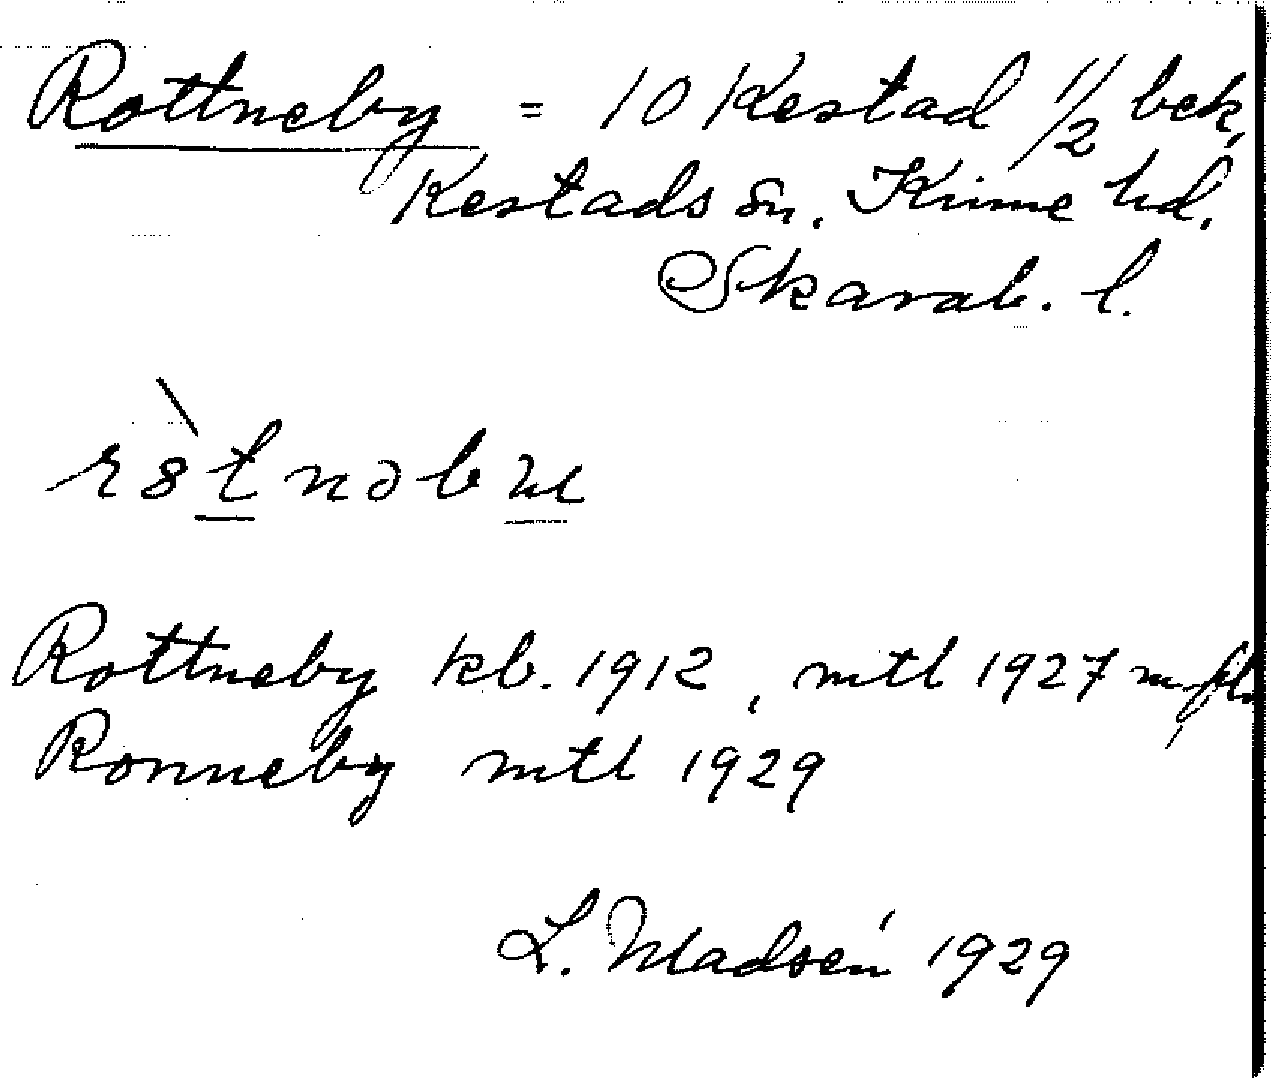 Rottneby = 10 Kestad 1/2 bek,
Kestads sn. Kinne hd.
Skarab. l.
Rottneby kb. 1912, mtl 1927 m. fl.
Ronneby mtl 1929
L. Madsén 1929